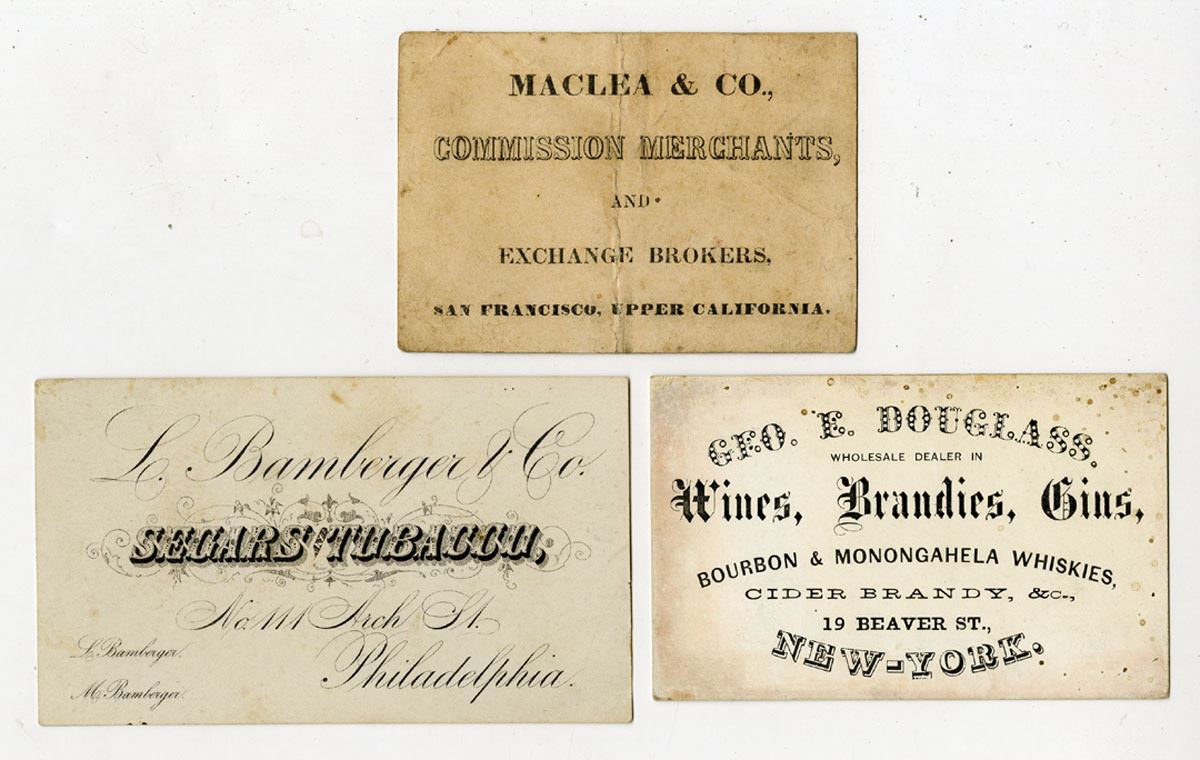 MACLEA & CO.,
COMMISSION MERCHANTS,
AND
EXCHANGE BROKERS,
SAN FRANCISCO, UPPER CALIFORNIA.
L. Bamberger & Co.
SEGARS & TOBACCO,
No. 111 Arch St.
Philadelphia.
L. Bamberger.
M. Bamberger.
GEO. E. DOUGLASS.
WHOLESALE DEALER IN
Wines, Brandies, Gins,
BOURBON & MONONGAHELA WHISKIES,
CIDER BRANDY, &c.,
19 BEAVER ST.,
NEW-YORK.